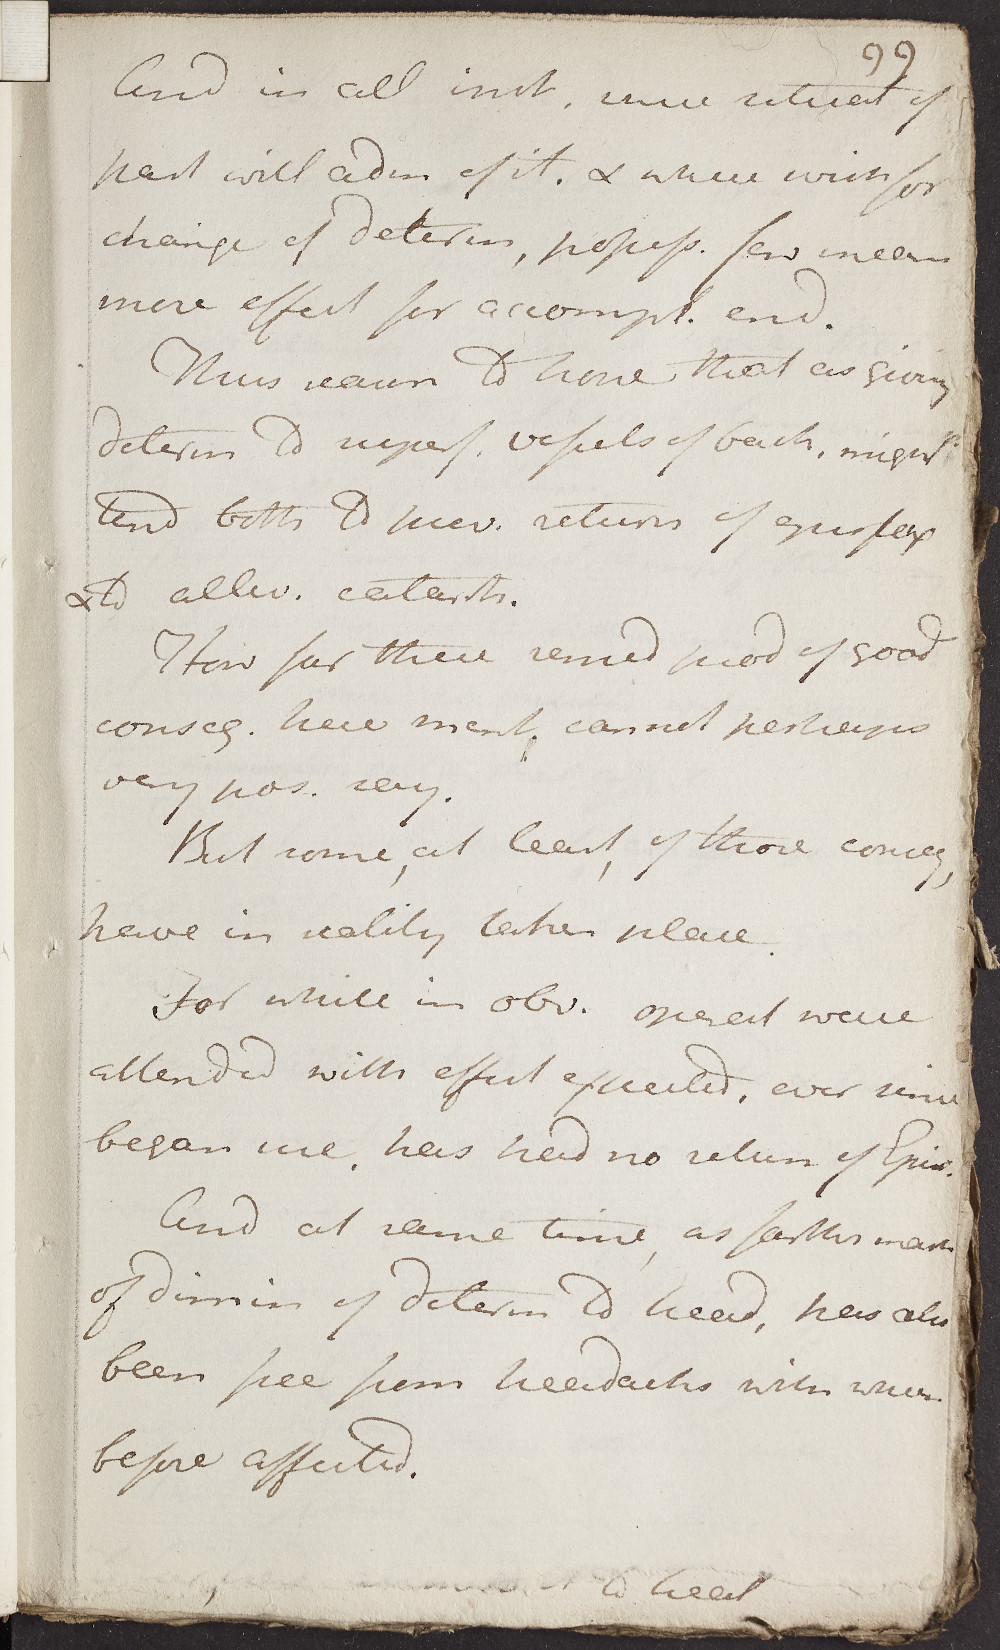 99
And in all inst. where situat of
part will adm of it. & where wish for
change of determ, possess. few mean
more effect for accompl. end.
Thus reason to hope that as giving
determ to superf. vessels of back, might
tend both to prev. return of epistax
& to allev. catarrh.
How far these remed prod of good
conseq. here ment, cannot perhaps
very pos. say.
But some, at least, of those conseq,
have in reality taken place.
For while in obv. operat were
attended with effect expected, ever since
began use, has had no return of Epis.
And at same time, as farther mark
of dimin of determ to head, has also
been free from headachs with whch
before affected.
to heat